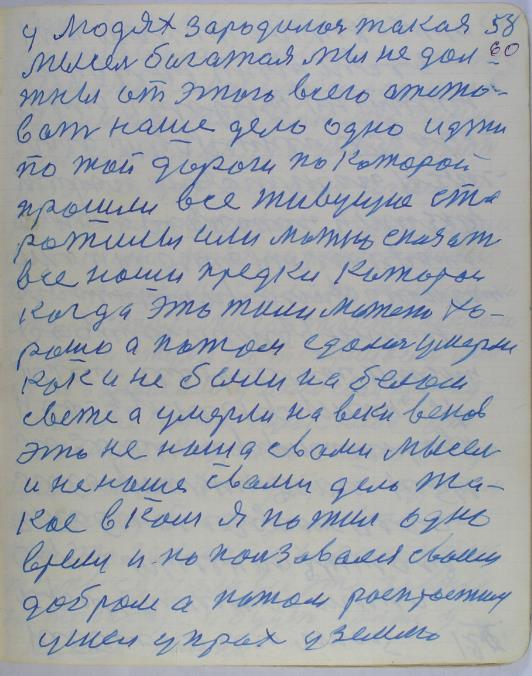 у людях зародилоя такая 58
мысел богатая мы не дол- 60
жны от этого всего отсто-
вать наше дело одно идти
по той дороги по которой
прошли все живущие ста
рожилы или можно сказат
все наши предки которои
когда это жили может хо-
рошо а потом сдолия умерли
как и не были на белом
свете а умерли на веки веков
это не наша свами мысел
и не наше свами дело та-
кое в ком я пожил одно
время и попользовался своем
добром а потом роспростил
ушел у прах у землю